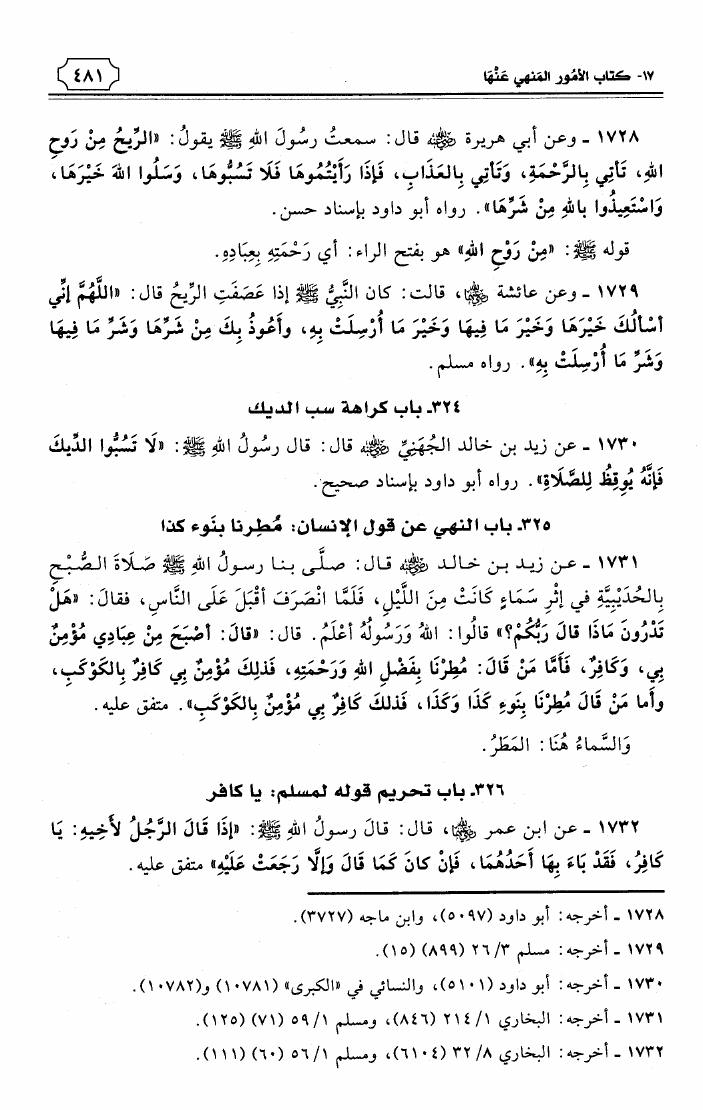 ١٧- كتاب الأمُور المَنهي عَنْهَا
٤٨١
١٧٢٨ ـ وعن أبي هريرة رضي الله عنه قال: سمعتُ رسُولَ اللهِ ﷺ يقولُ: «الرِّيحُ مِنْ رَوحِ
اللهِ، تَأتِي بِالرَّحْمَةِ، وَتَأتِي بِالعَذَابِ، فَإذَا رَأَيْتُمُوهَا فَلَا تَسُبُّوهَا، وَسَلُوا اللهَ خَيْرَهَا،
وَاسْتَعِيذُوا باللهِ مِنْ شَرِّهَا». رواه أبو داود بإسناد حسن.
قوله ﷺ: «مِنْ رَوْحِ اللهِ» هو بفتح الراء: أي رَحْمَتِهِ بِعِبَادِهِ.
١٧٢٩ ـ وعن عائشة رضي الله عنها، قالت: كان النَّبِيُّ ﷺ إذا عَصَفَتِ الرِّيحُ قال: «اللَّهُمَّ إنِّي
أسْألُكَ خَيْرَهَا وَخَيْرَ مَا فِيهَا وَخَيْرَ مَا أُرْسِلَتْ بِهِ، وأَعُوذُ بِكَ مِنْ شَرِّهَا وَشَرِّ مَا فِيهَا
وَشَرِّ مَا أُرْسِلَتْ بِهِ». رواه مسلم.
٣٢٤ـ باب كراهة سب الديك
١٧٣٠ ـ عن زيد بن خالد الجُهَنِيِّ رضي الله عنه قال: قال رسُولُ اللهِ ﷺ: «لَا تَسُبُّوا الدِّيكَ
فَإنَّهُ يُوقِظُ لِلصَّلَاةِ». رواه أبو داود بإسناد صحيح.
٣٢٥ـ باب النهي عن قول الإنسان: مُطِرنا بنَوء كذا
١٧٣١ ـ عن زيد بن خالد رضي الله عنه قال: صلَّى بنا رسولُ اللهِ ﷺ صَلَاةَ الصُّبْحِ
بِالحُدَيْبِيَّةِ في إثْرِ سَمَاءٍ كَانَتْ مِنَ اللَّيْلِ، فَلَمَّا انْصَرَفَ أقْبَلَ عَلَى النَّاسِ، فقالَ: «هَلْ
تَدْرُونَ مَاذَا قالَ رَبُّكُمْ؟» قالُوا: اللهُ وَرَسُولُهُ أعْلَمُ. قال: «قالَ: أصْبَحَ مِنْ عِبَادِي مُؤْمِنٌ
بِي، وَكَافِرٌ، فَأَمَّا مَنْ قَالَ: مُطِرْنَا بِفَضْلِ اللهِ وَرَحْمَتِهِ، فَذلِكَ مُؤْمِنٌ بِي كَافِرٌ بِالكَوْكَبِ،
وأَما مَنْ قَالَ مُطِرْنَا بِنَوءِ كَذَا وَكَذَا، فَذلكَ كَافِرٌ بِي مُؤْمِنٌ بِالكَوْكَبِ». متفق عليه.
وَالسَّماءُ هُنَا: المَطَرُ.
٣٢٦ـ باب تحريم قوله لمسلم: يا كافر
١٧٣٢ ـ عن ابن عمر رضي الله عنهما، قال: قالَ رسولُ اللهِ ﷺ: «إذَا قَالَ الرَّجُلُ لأَخِيهِ: يَا
كَافِرُ، فَقَدْ بَاءَ بِهَا أَحَدُهُمَا، فَإنْ كانَ كَمَا قَالَ وَإلَّا رَجَعَتْ عَلَيْهِ» متفق عليه.
١٧٢٨ ـ أخرجه: أبو داود (٥٠٩٧)، وابن ماجه (٣٧٢٧).
١٧٢٩ ـ أخرجه: مسلم ٢٦/٣ (٨٩٩) (١٥).
١٧٣٠ ـ أخرجه: أبو داود (٥١٠١)، والنسائي في «الكبرى» (١٠٧٨١) و(١٠٧٨٢).
١٧٣١ ـ أخرجه: البخاري ٢١٤/١ (٨٤٦)، ومسلم ٥٩/١ (٧١) (١٢٥).
١٧٣٢ ـ أخرجه: البخاري ٣٢/٨ (٦١٠٤)، ومسلم ٥٦/١ (٦٠) (١١١).